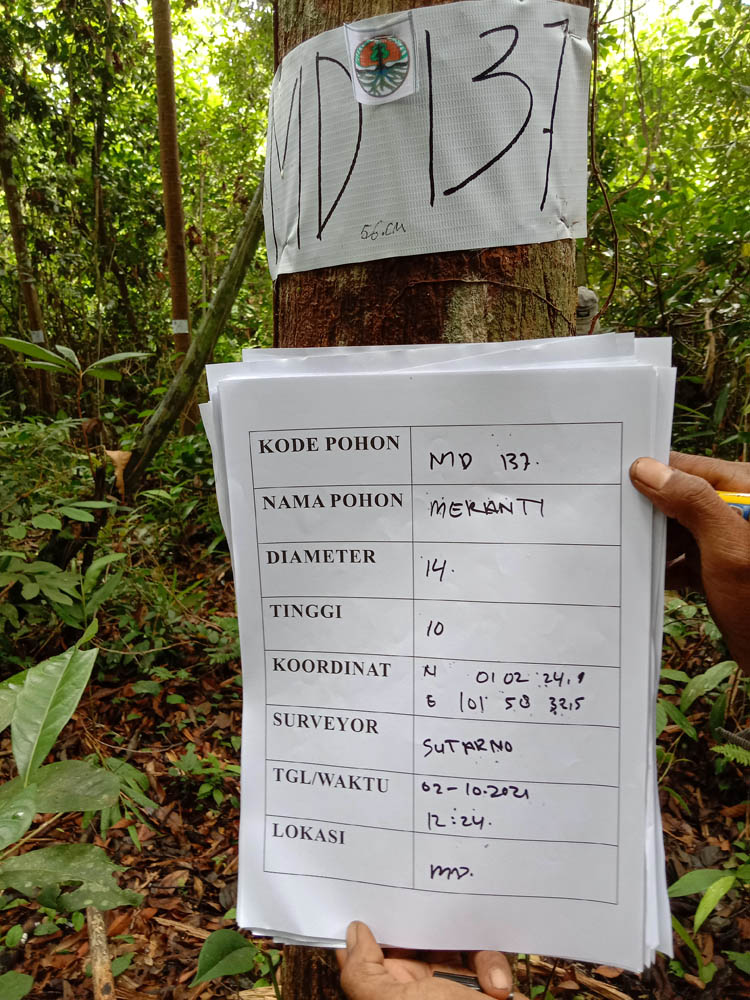 MD 137
56.CM
KODE POHON MD 137.
NAMA POHON MERANTI
DIAMETER 14.
TINGGI 10
KOORDINAT N 01 02 24,9
E 101 58 32,5
SURVEYOR SUTARNO
TGL/WAKTU 02-10.2021
12:24.
LOKASI MD.